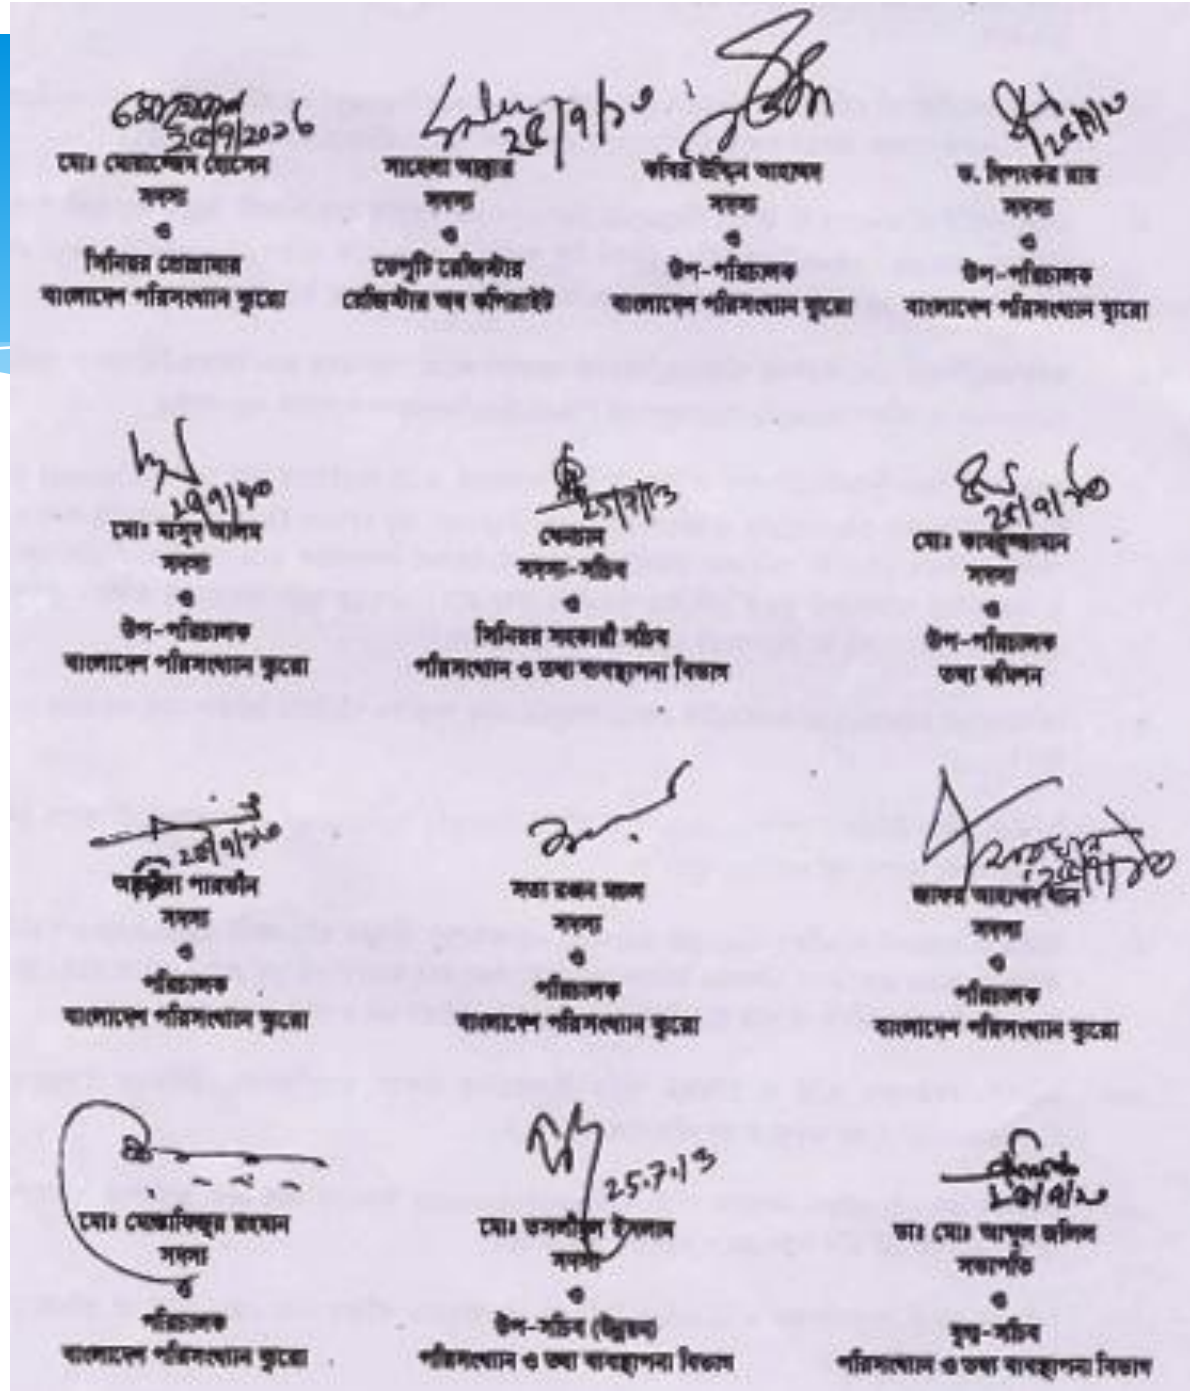 ২৫/৭/২০১৩
মোঃ মোয়াজ্জেম হোসেন
সদস্য
ও
সিনিয়র প্রোগ্রামার
বাংলাদেশ পরিসংখ্যান ব্যুরো
২৫/৭/১৩
সাহেলা আক্তার
সদস্য
ও
ডেপুটি রেজিস্টার
রেজিস্টার অব কপিরাইট
কবির উদ্দিন আহাম্মদ
সদস্য
ও
উপ-পরিচালক
বাংলাদেশ পরিসংখ্যান ব্যুরো
২৫/৭/১৩
ড. দিপংকর রায়
সদস্য
ও
উপ-পরিচালক
বাংলাদেশ পরিসংখ্যান ব্যুরো
২৫/৭/১৩
মোঃ মাসুদ আলম
সদস্য
ও
উপ-পরিচালক
বাংলাদেশ পরিসংখ্যান ব্যুরো
25/7/13
খেনচান
সদস্য-সচিব
ও
সিনিয়র সহকারী সচিব
পরিসংখ্যান ও তথ্য ব্যবস্থাপনা বিভাগ
২৫/৭/১৩
মোঃ কামরুজ্জামান
সদস্য
ও
উপ-পরিচালক
তথ্য কমিশন
২৫/৭/১৩
পারভীন
সদস্য
ও
পরিচালক
বাংলাদেশ পরিসংখ্যান ব্যুরো
সত্য রঞ্জন মন্ডল
সদস্য
ও
পরিচালক
বাংলাদেশ পরিসংখ্যান ব্যুরো
২৫/৭/১৩
জাফর আহাম্মদ খান
সদস্য
ও
পরিচালক
বাংলাদেশ পরিসংখ্যান ব্যুরো
মোঃ মোস্তাফিজুর রহমান
সদস্য
ও
পরিচালক
বাংলাদেশ পরিসংখ্যান ব্যুরো
25.7.13
মোঃ তসলীমুল ইসলাম
সদস্য
ও
উপ-সচিব (উন্নয়ন)
পরিসংখ্যান ও তথ্য ব্যবস্থাপনা বিভাগ
২৫/৭/১৩
ডাঃ মোঃ আব্দুল জলিল
সভাপতি
ও
যুগ্ম-সচিব
পরিসংখ্যান ও তথ্য ব্যবস্থাপনা বিভাগ